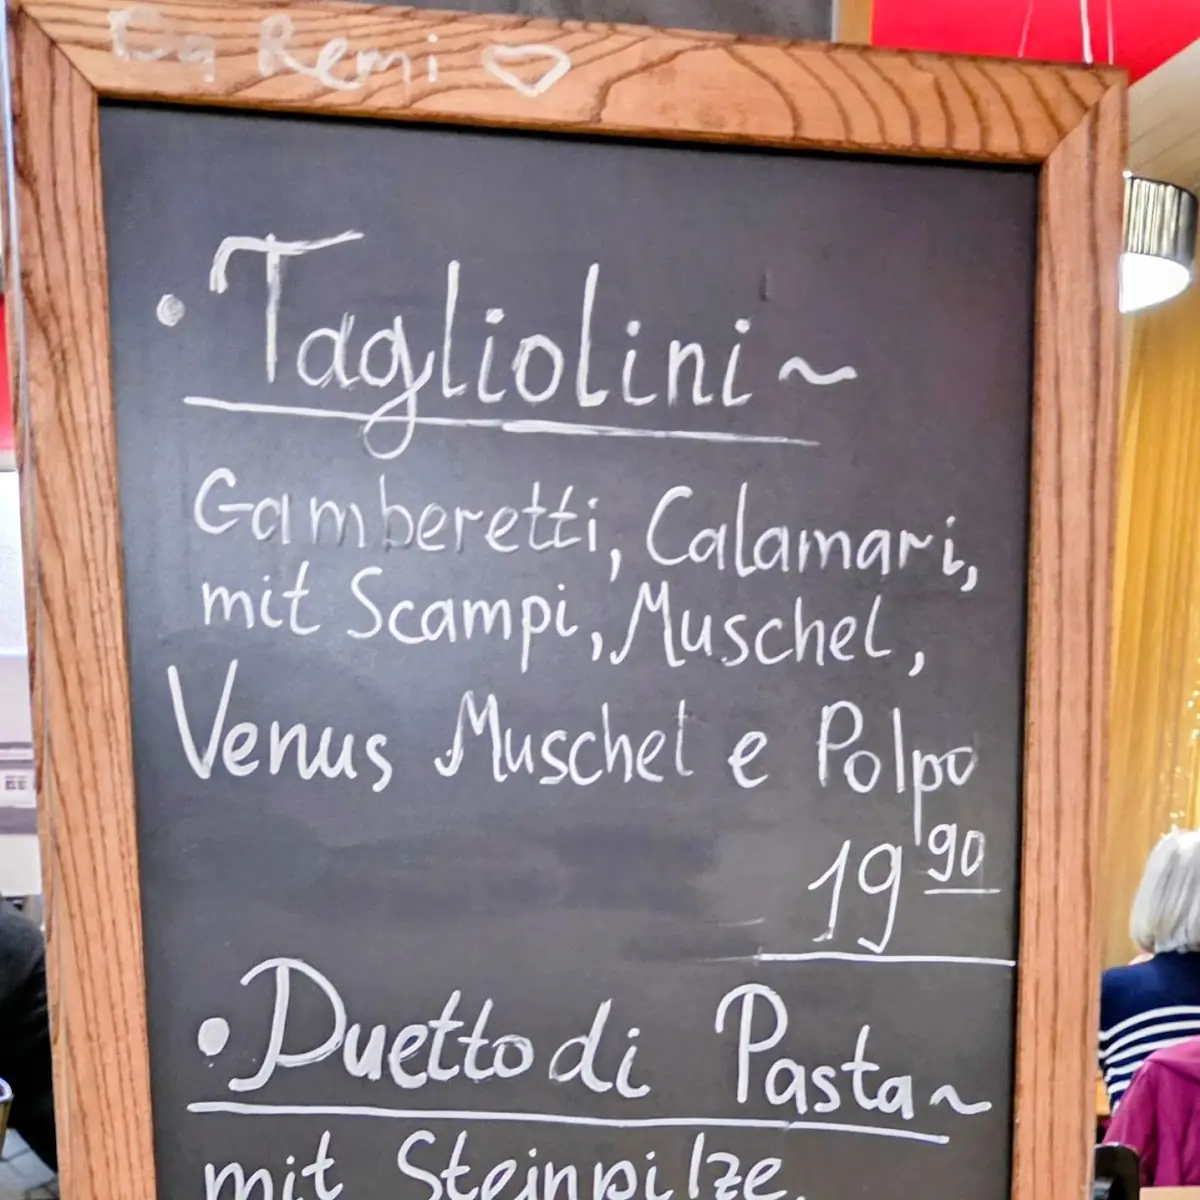 Da Remi ♡
• Tagliolini ~
Gamberetti, Calamari,
mit Scampi, Muschel,
Venus Muschel e Polpo
19 90
• Duetto di Pasta ~
mit Steinpilze,